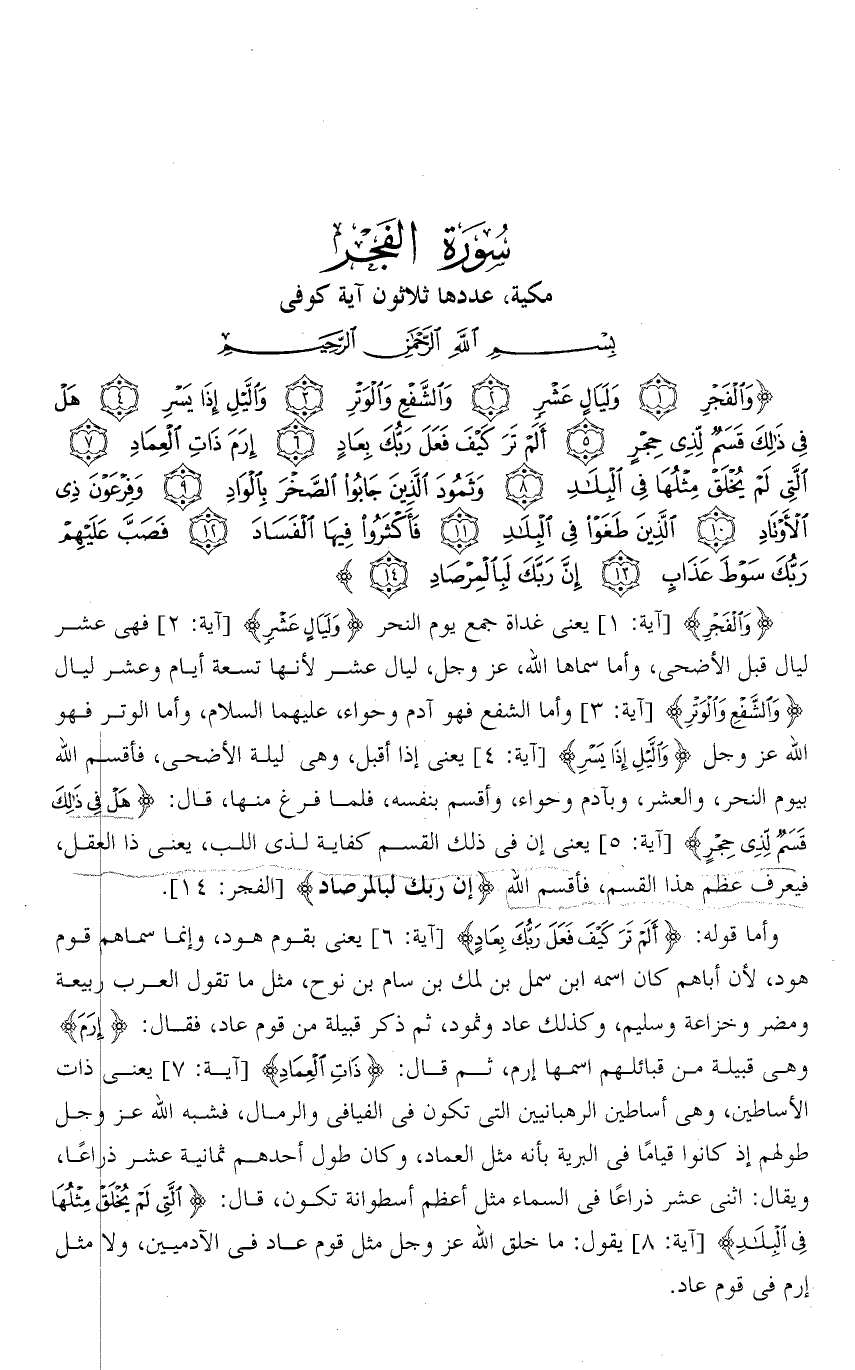 سُورَة الفَجْر
مكية، عددها ثلاثون آية كوفى
بِسْمِ ٱللَّهِ ٱلرَّحْمَٰنِ ٱلرَّحِيمِ
﴿وَٱلْفَجْرِ ١ وَلَيَالٍ عَشْرٍ ٢ وَٱلشَّفْعِ وَٱلْوَتْرِ ٣ وَٱلَّيْلِ إِذَا يَسْرِ ٤ هَلْ
فِى ذَٰلِكَ قَسَمٌ لِّذِى حِجْرٍ ٥ أَلَمْ تَرَ كَيْفَ فَعَلَ رَبُّكَ بِعَادٍ ٦ إِرَمَ ذَاتِ ٱلْعِمَادِ ٧
ٱلَّتِى لَمْ يُخْلَقْ مِثْلُهَا فِى ٱلْبِلَٰدِ ٨ وَثَمُودَ ٱلَّذِينَ جَابُوا۟ ٱلصَّخْرَ بِٱلْوَادِ ٩ وَفِرْعَوْنَ ذِى
ٱلْأَوْتَادِ ١٠ ٱلَّذِينَ طَغَوْا۟ فِى ٱلْبِلَٰدِ ١١ فَأَكْثَرُوا۟ فِيهَا ٱلْفَسَادَ ١٢ فَصَبَّ عَلَيْهِمْ
رَبُّكَ سَوْطَ عَذَابٍ ١٣ إِنَّ رَبَّكَ لَبِٱلْمِرْصَادِ ١٤ ﴾
﴿وَٱلْفَجْرِ﴾ [آية: ١] يعنى غداة جمع يوم النحر ﴿وَلَيَالٍ عَشْرٍ﴾ [آية: ٢] فهى عشر
ليال قبل الأضحى، وأما سماها الله، عز وجل، ليال عشر لأنها تسعة أيام وعشر ليال
﴿وَٱلشَّفْعِ وَٱلْوَتْرِ﴾ [آية: ٣] وأما الشفع فهو آدم وحواء، عليهما السلام، وأما الوتر فهو
الله عز وجل ﴿وَٱلَّيْلِ إِذَا يَسْرِ﴾ [آية: ٤] يعنى إذا أقبل، وهى ليلة الأضحى، فأقسم الله
بيوم النحر، والعشر، وبآدم وحواء، وأقسم بنفسه، فلما فرغ منها، قال: ﴿هَلْ فِى ذَٰلِكَ
قَسَمٌ لِّذِى حِجْرٍ﴾ [آية: ٥] يعنى إن فى ذلك القسم كفاية لذى اللب، يعنى ذا العقل،
فيعرف عظم هذا القسم، فأقسم الله ﴿إن ربك لبالمرصاد﴾ [الفجر: ١٤].
وأما قوله: ﴿أَلَمْ تَرَ كَيْفَ فَعَلَ رَبُّكَ بِعَادٍ﴾ [آية: ٦] يعنى بقوم هود، وإنما سماهم قوم
هود، لأن أباهم كان اسمه ابن سمل بن لمك بن سام بن نوح، مثل ما تقول العرب ربيعة
ومضر وخزاعة وسليم، وكذلك عاد وثمود، ثم ذكر قبيلة من قوم عاد، فقال: ﴿إِرَمَ﴾
وهى قبيلة من قبائلهم اسمها إرم، ثم قال: ﴿ذَاتِ ٱلْعِمَادِ﴾ [آية: ٧] يعنى ذات
الأساطين، وهى أساطين الرهبانيين التى تكون فى الفيافى والرمال، فشبه الله عز وجل
طولهم إذ كانوا قيامًا فى البرية بأنه مثل العماد، وكان طول أحدهم ثمانية عشر ذراعًا،
ويقال: اثنى عشر ذراعًا فى السماء مثل أعظم أسطوانة تكون، قال: ﴿ٱلَّتِى لَمْ يُخْلَقْ مِثْلُهَا
فِى ٱلْبِلَٰدِ﴾ [آية: ٨] يقول: ما خلق الله عز وجل مثل قوم عاد فى الآدميين، ولا مثل
إرم فى قوم عاد.